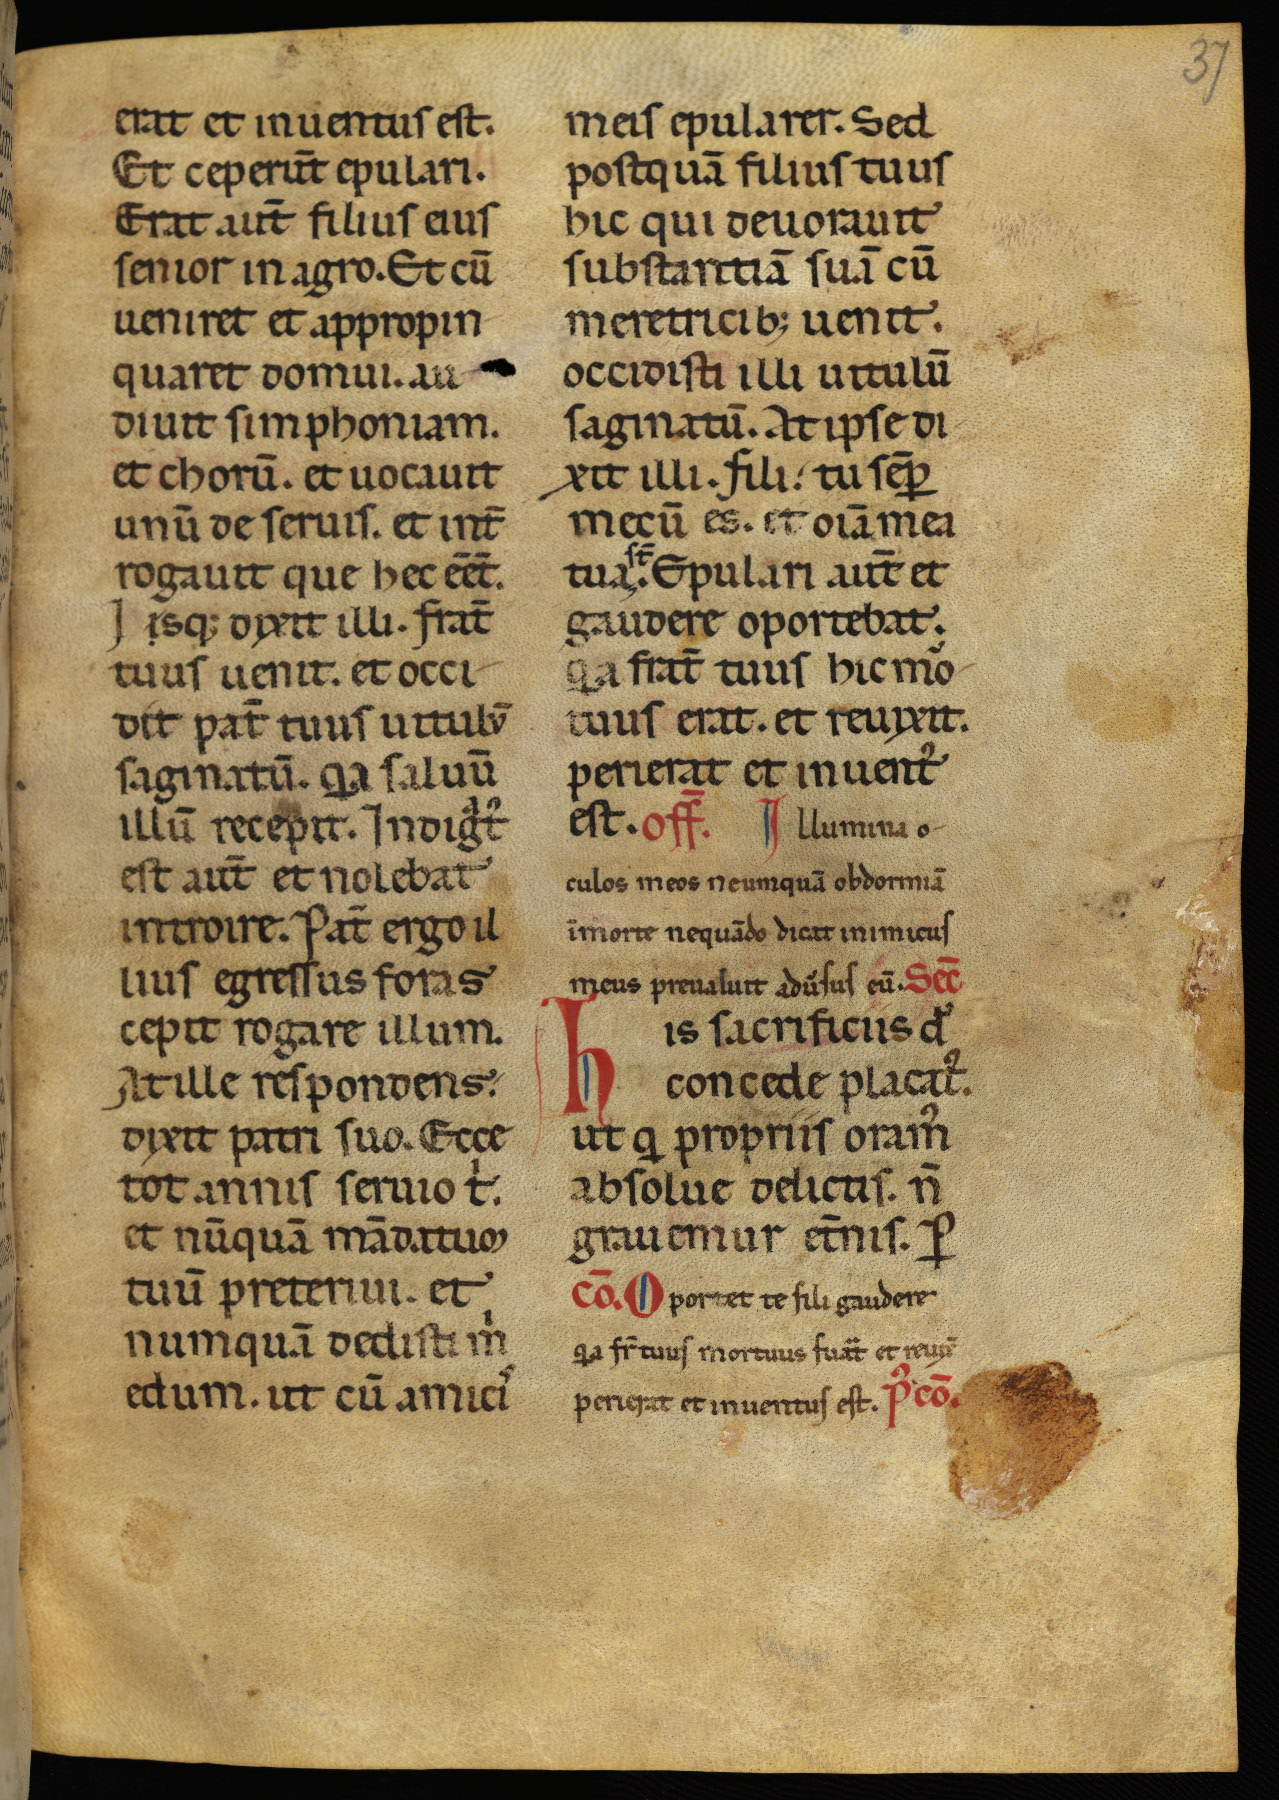 37
erat et inuentus est.
Et ceperūt epulari.
Erat aut̄ filius eius
senior in agro. Et cū
ueniret et appropin
quaret domui. au
diuit simphoniam.
et chorū. et uocauit
unū de seruis. et int̄
rogauit que hec eēt̄.
Jisq; dixit illi. frat̄
tuus uenit. et occi
dit pat̄ tuus uitulū
saginatū. qa saluū
illū recepit. Indigᷓt᷒
est aut̄ et nolebat
introire. Pat̄ ergo il
lius egressus foras
cepit rogare illum.
At ille respondens.
dixit patri suo. Ecce
tot annis seruio tⁱ.
et nūquā mādatum
tuū preteriui. et
numquā dedisti mⁱ
edum. ut cū amicis
meis epularer. Sed
postquā filius tuus
hic qui deuorauit
substantiā suā cū
meretricib; uenit.
occidisti illi uitulū
saginatū. At ipse di
xit illi. fili: tu sēꝑ
mecū es. et oīa mea
tua st̄. Epulari aut̄ et
gaudere oportebat.
qa frat̄ tuus hic mor
tuus erat. et reuixit.
perierat et inuent᷒
est. off̄. Illumina o
culos meos neumquā obdormiā
ī morte nequādo dicat inimicus
meus preualuit adūsus eū. Sec̄
his sacrificiis d̄s
concede placat᷒.
ut q propriis oram᷒
absolue delictis. n̄
grauemur et̄nis. ꝑ
cō. Oportet te fili gaudere
qa fr̄ tuus mortuus fuāt et reuix̄
perierat et inuentus est. p᷒ cō.